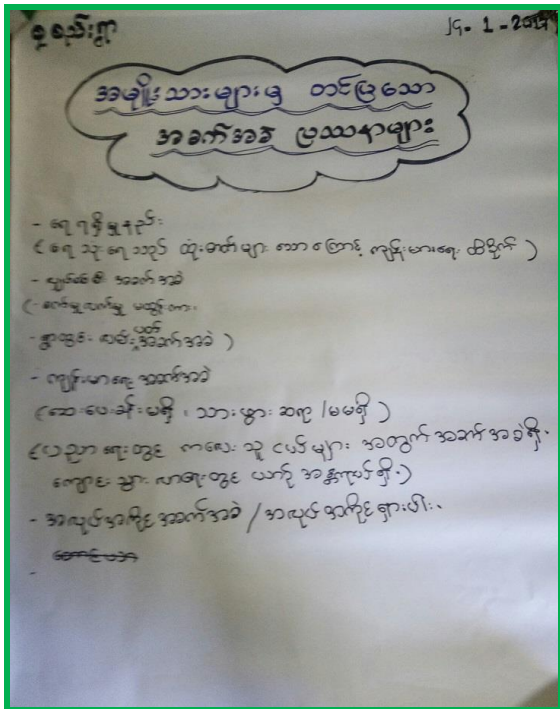 စုစည်းရွာ
29-1-2019
အမျိုးသားများမှ တင်ပြသော
အခက်အခဲ ပြဿနာများ
- ရေရရှိမှုနည်း
( ရေသူးရေသည် ထုံးဓာတ်များသောကြောင့် ကျန်းမာရေး ထိခိုက် )
- အခက်အခဲ
မထွန်းကား၊
- ရွာတွင်း လမ်းပတ် အခက်အခဲ )
- ကျန်းမာရေး အခက်အခဲ
( ဆေးပေးခန်းမရှိ ၊ သားဖွား ဆရာ /မ မရှိ )
( ပညာရေးတွင် ကလေးသူငယ်များ အတွက် အခက်အခဲရှိ.
ကျောင်းသွား လာရေးတွင် ယာဉ် အန္တရာယ်ရှိ. )
- အလုပ်အကိုင်အခက်အခဲ / အလုပ်အကိုင်ရှားပါး.